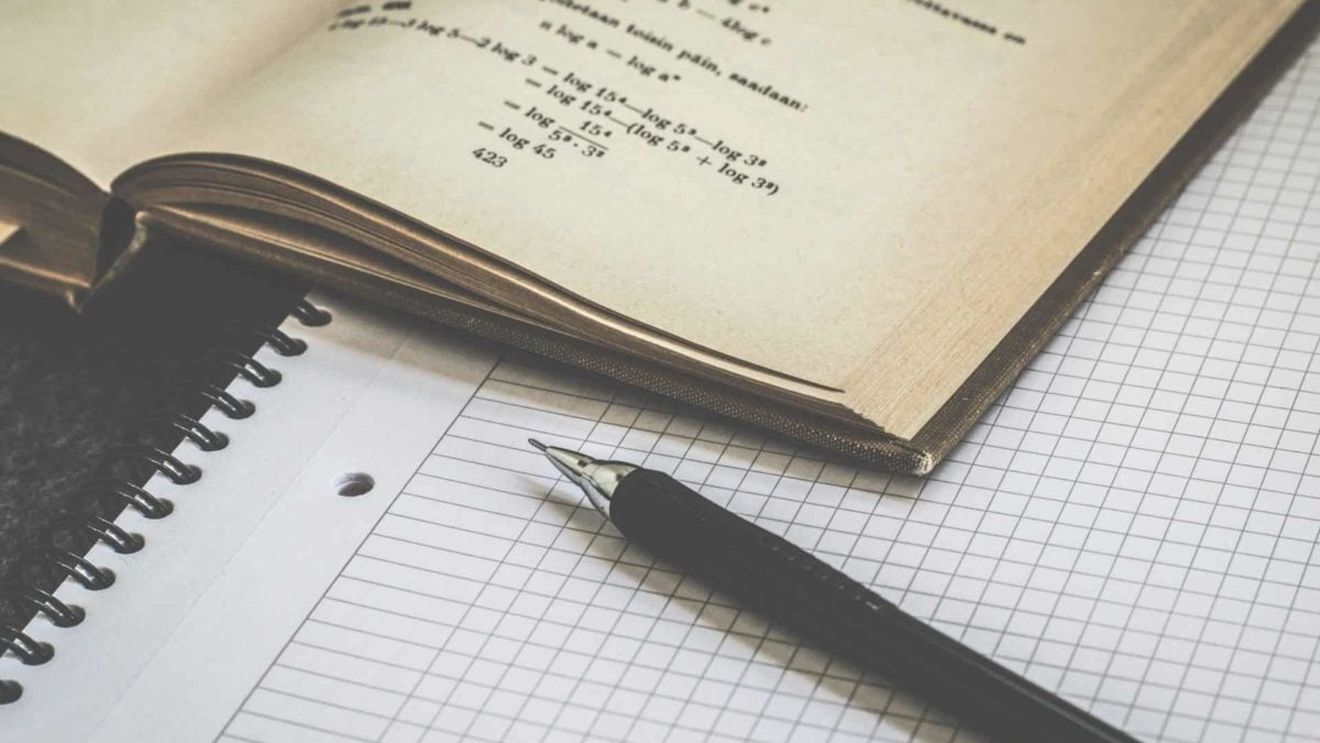 b — 4log c
toisin päin, saadaan:
n log a — log aⁿ
log 5—2 log 3 — log 15⁴—log 5³—log 3²
— log 15⁴—(log 5³ + log 3²)
— log 15⁴
5³· 3²
— log 45
423